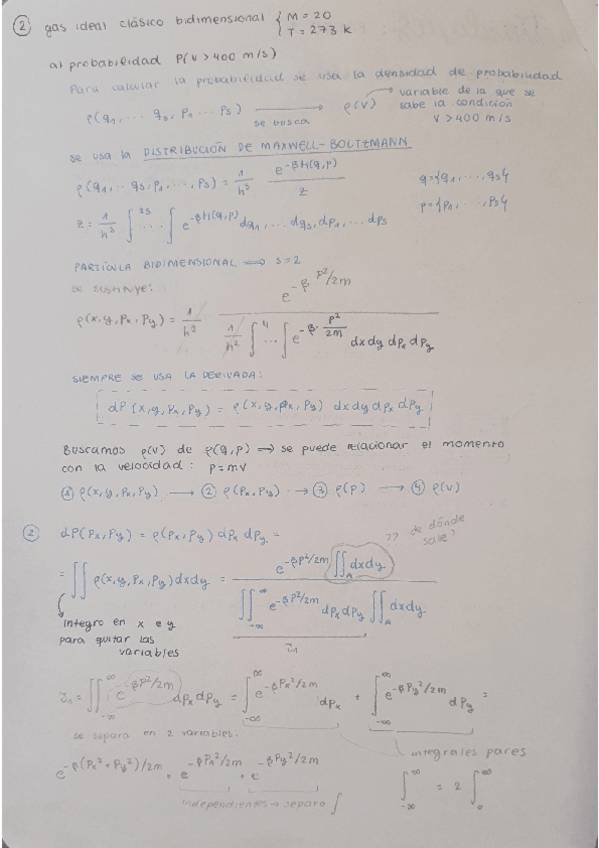 ② gas ideal clásico bidimensional { M = 20
T = 273 K
a) probabilidad P(v > 400 m/s)
Para calcular la probabilidad se usa la densidad de probabilidad
ρ(q₁, ... qs, p₁ ... ps) → se busca ρ(v) → variable de la que se sabe la condición v > 400 m/s
se usa la DISTRIBUCIÓN DE MAXWELL-BOLTZMANN
ρ(q₁, .. qs, p₁, ..., ps) = 1/h^s e^-βH(q,p) / z    q = {q₁, ..., qs}
z = 1/h^s ∫ ^2s ... ∫ e^-βH(q,p) dq₁, ... dqs, dp₁, ... dps    p = {p₁, ..., ps}
PARTÍCULA BIDIMENSIONAL ⟹ s = 2
se sustituye:
ρ(x, y, px, py) = 1/h² e^-β p²/2m / 1/h² ∫ ^4 ... ∫ e^-β· p²/2m dx dy dpx dpy
SIEMPRE SE USA LA DERIVADA:
dP(x, y, px, py) = ρ(x, y, px, py) dx dy dpx dpy
Buscamos ρ(v) de ρ(q, p) → se puede relacionar el momento
con la velocidad: p = mv
① ρ(x, y, px, py) → ② ρ(px, py) → ③ ρ(p) → ④ ρ(v)
② dP(px, py) = ρ(px, py) dpx dpy =    ?? de dónde sale?
= ∬ ρ(x, y, px, py) dx dy = e^-βp²/2m ∬_A dx dy / ∬_-∞^∞ e^-βp²/2m dpx dpy ∬_A dx dy
z₁
integro en x e y
para quitar las
variables
z₁ = ∬_-∞^∞ e^-βp²/2m dpx dpy = ∫_-∞^∞ e^-βpx²/2m dpx · ∫_-∞^∞ e^-βpy²/2m dpy =
se separa en 2 variables.
integrales pares
e^-β(px² + py²)/2m = e^-βpx²/2m · e^-βpy²/2m    ∫_-∞^∞ = 2 ∫_0^∞
independientes → separo ∫